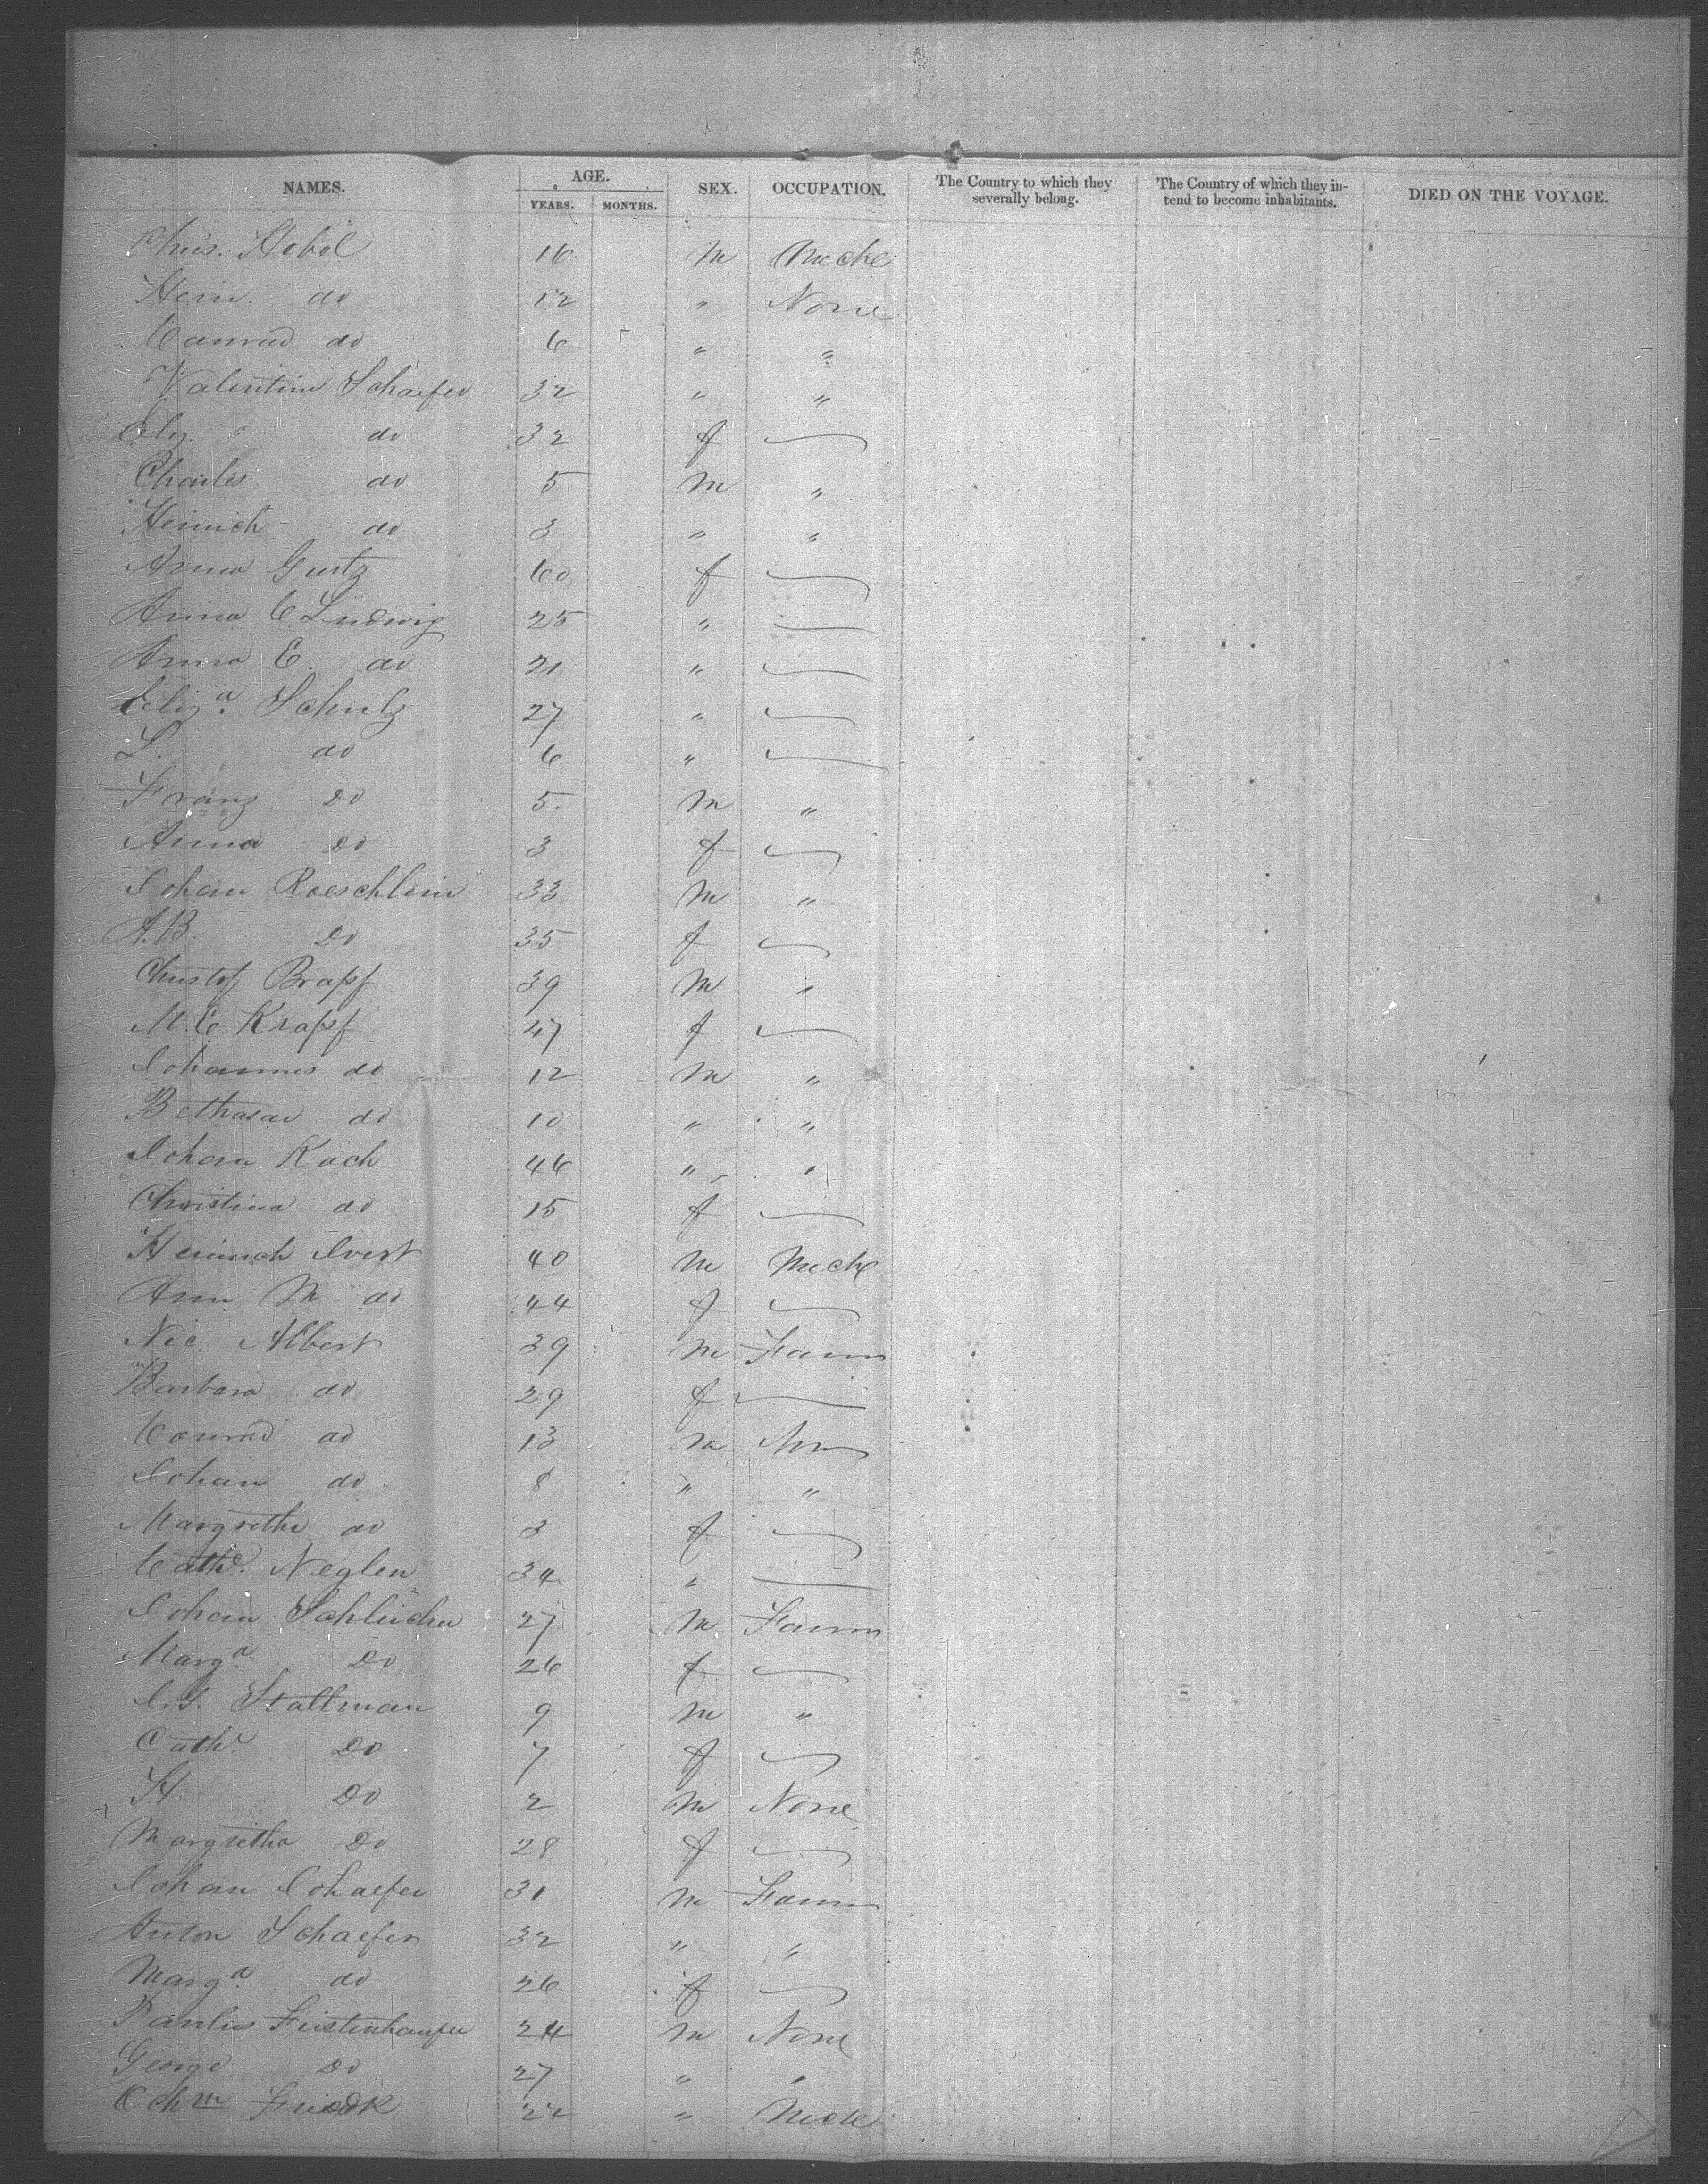 NAMES. AGE. YEARS. MONTHS. SEX. OCCUPATION. The Country to which they severally belong. The Country of which they intend to become inhabitants. DIED ON THE VOYAGE.
Chris. Hebel 16 M Meche
Hein. do 12 " None
Conrad do 6 " "
Valentin Schaefer 32 " "
Eliz. do 32 f
Charles do 5 M "
Heinrich do 3 " "
Anna Gurtz 60 f
Anna C Ludwig 25 "
Anna E. do 21 "
Eliza. Schulz 27 "
L. do 6 "
Franz Do 5. M "
Anna Do 3 f
Johan Roeschlein 33 M "
A.B. Do 35 f
Christof Brapf 39 M "
M.E Krapf 47 f
Johannes do 12 M "
Bethasar do 10 " "
Johan Koch 46 " "
Christina do 15 f
Heinrich Evert 40 M Meche
Ann M do 44 f
Nic. Albert 39 M Farm
Barbara do 29 f
Conrad do 13 M
Johan do 8 " "
Margretha do 3 f
Cathe. Neglen 34 "
Johan Schleicher 27 M Farm
Marga. Do 26 f
J.G. Stallman 9 M "
Cath. Do 7 f
H Do 2 M None
Margretha Do 28 f
Johan Schaefer 31 M Farm
Anton Schaefer 32 " "
Marga. do 26 f
Paulus Feistenhaufer 24 M None
George Do 27 " "
Friedk 22 "